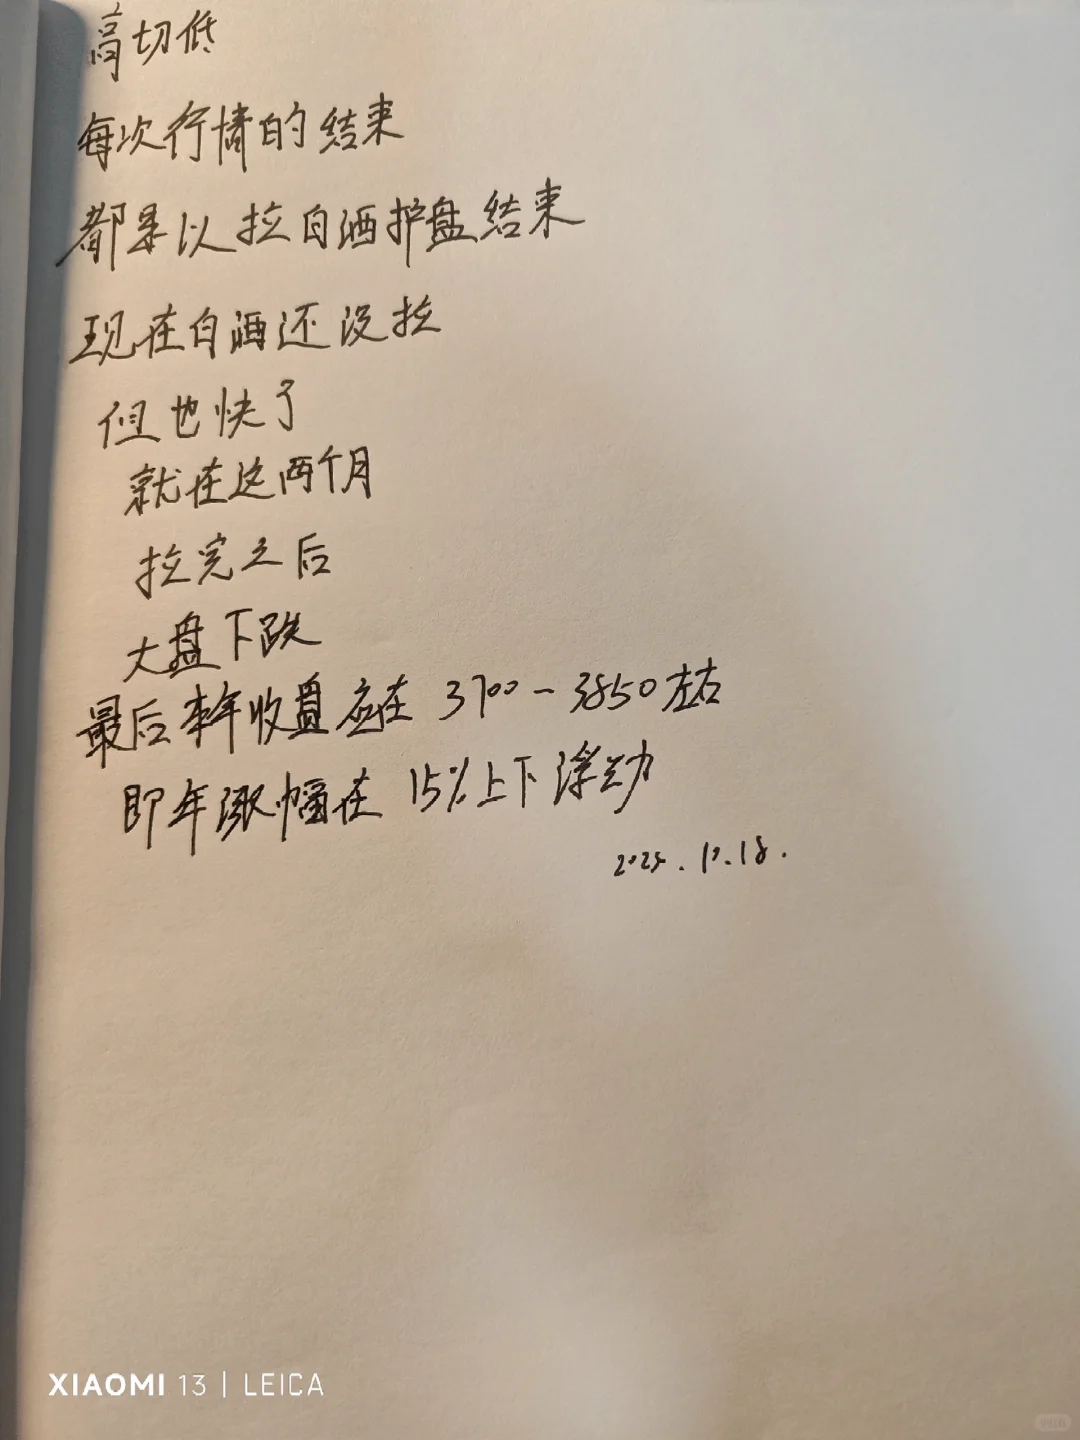 高切低
每次行情的结束
都是以拉白酒护盘结束
现在白酒还没拉
但也快了
就在这两个月
拉完之后
大盘下跌
最后本年收盘应在 3700-3850左右
即年涨幅在 15%上下浮动
2025.10.18.
XIAOMI 13 | LEICA